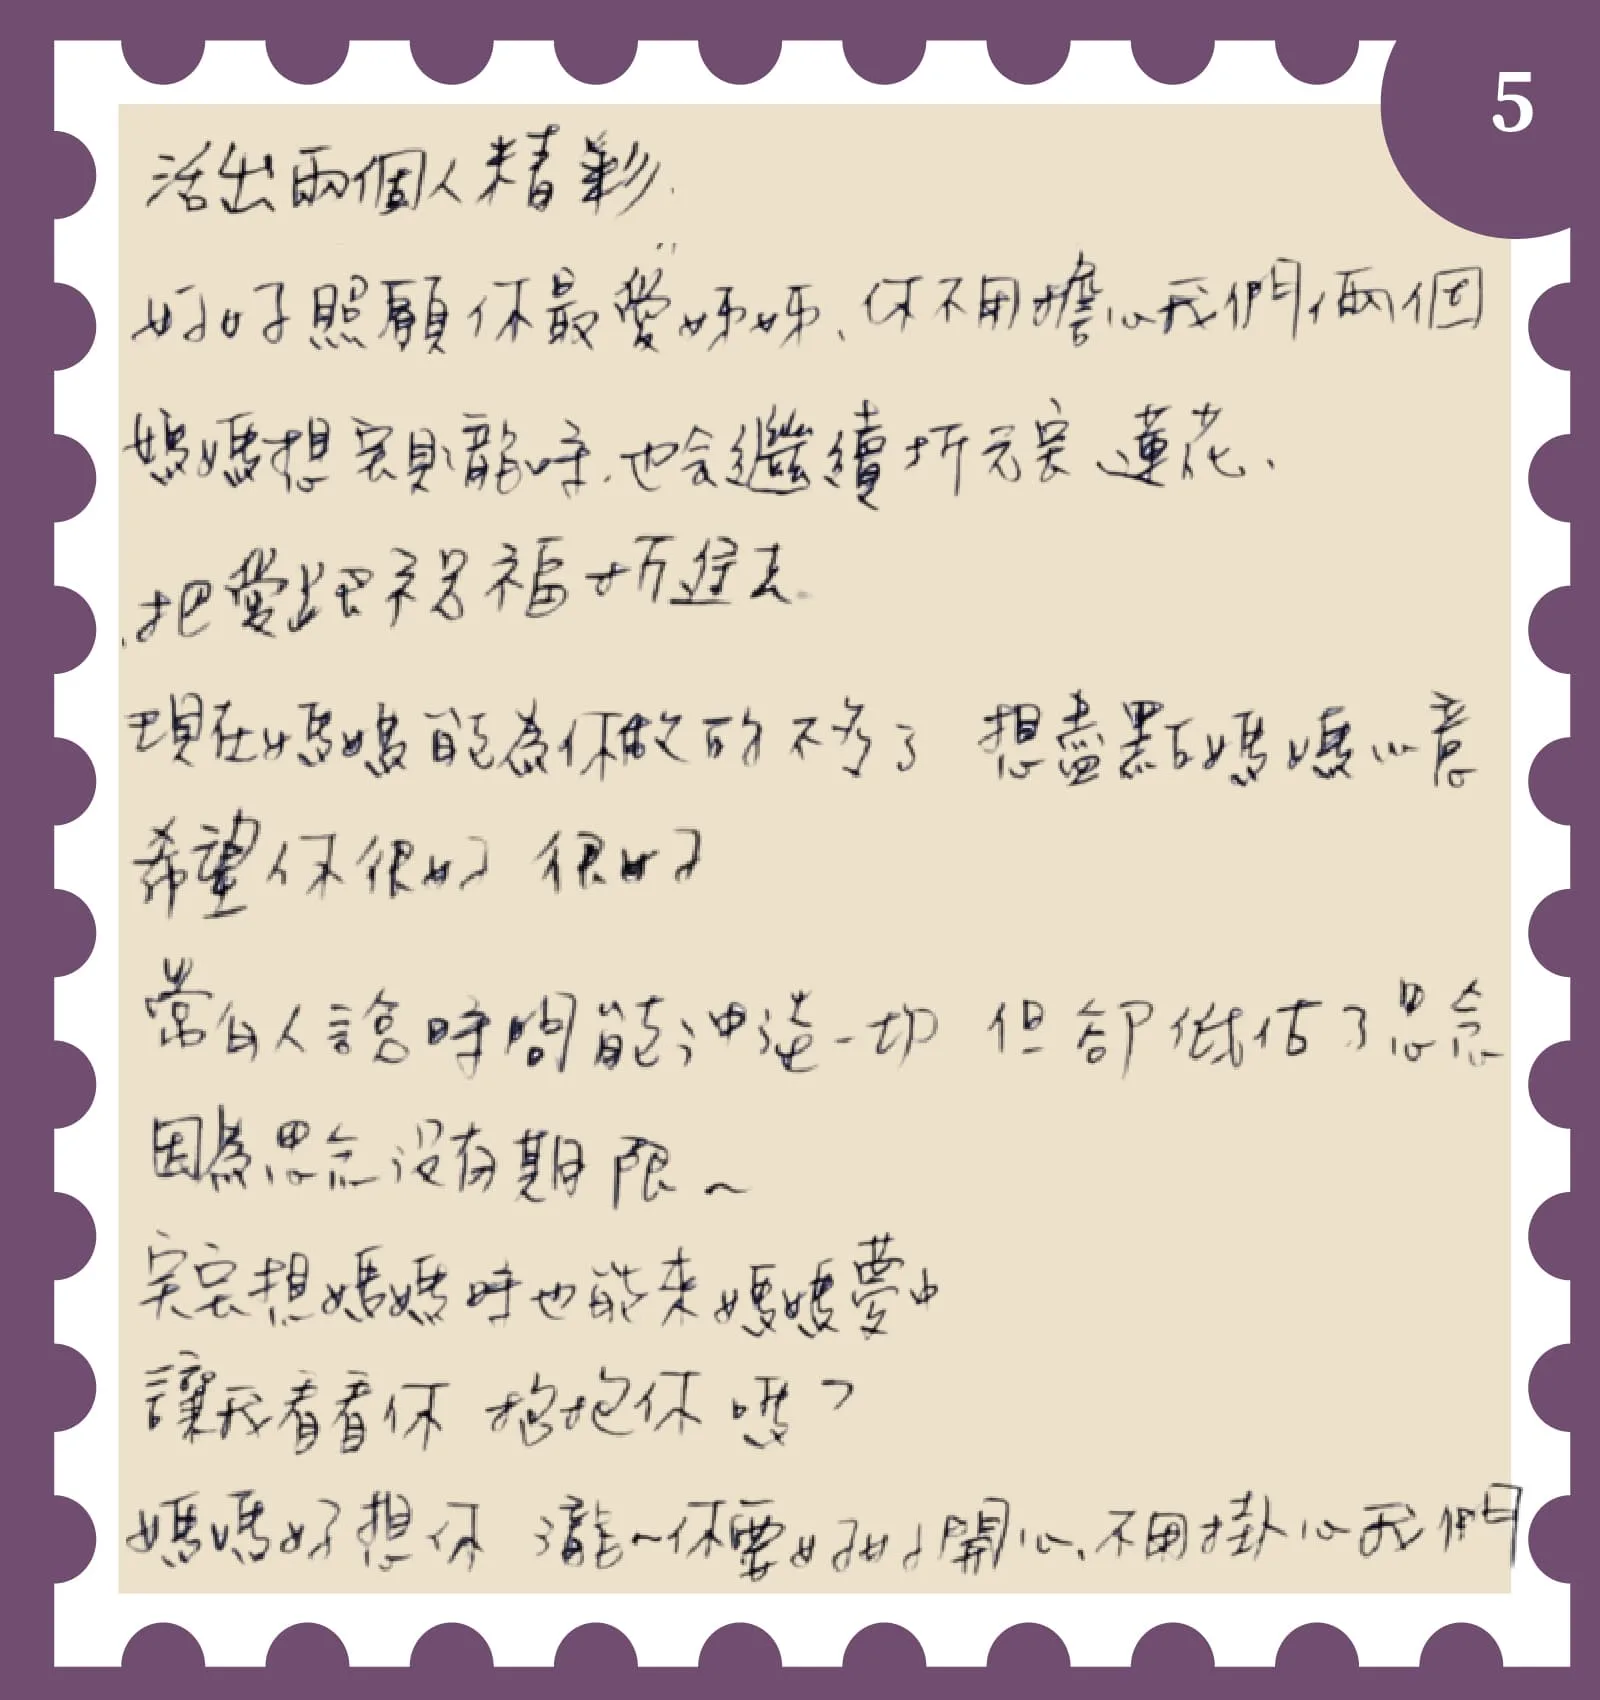 5
活出兩個人精彩.
好好照顧你最愛姊姊、你不用擔心我們倆個
媽媽想寶貝龍時.也會繼續折元宝蓮花.
把愛跟祝福折進去.
現在媽媽能為你做的不多了 想盡點媽媽心意
希望你很好 很好
當白人說時間能沖淡一切 但卻低估了思念
因為思念沒有期限~
宝宝想媽媽時也能來媽媽夢中
讓我看看你 抱抱你嗎?
媽媽好想你 瀧~你要好好開心、不用掛心我們